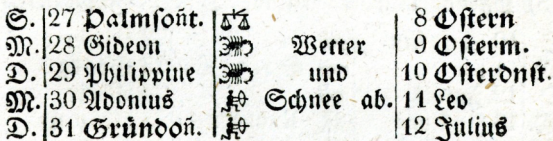 S. 27 Palmsoñt. 8 Ostern
M. 28 Gideon Wetter 9 Osterm.
D. 29 Philippine und 10 Osterdnst.
M. 30 Adonius Schnee ab. 11 Leo
D. 31 Gründoñ. 12 Julius